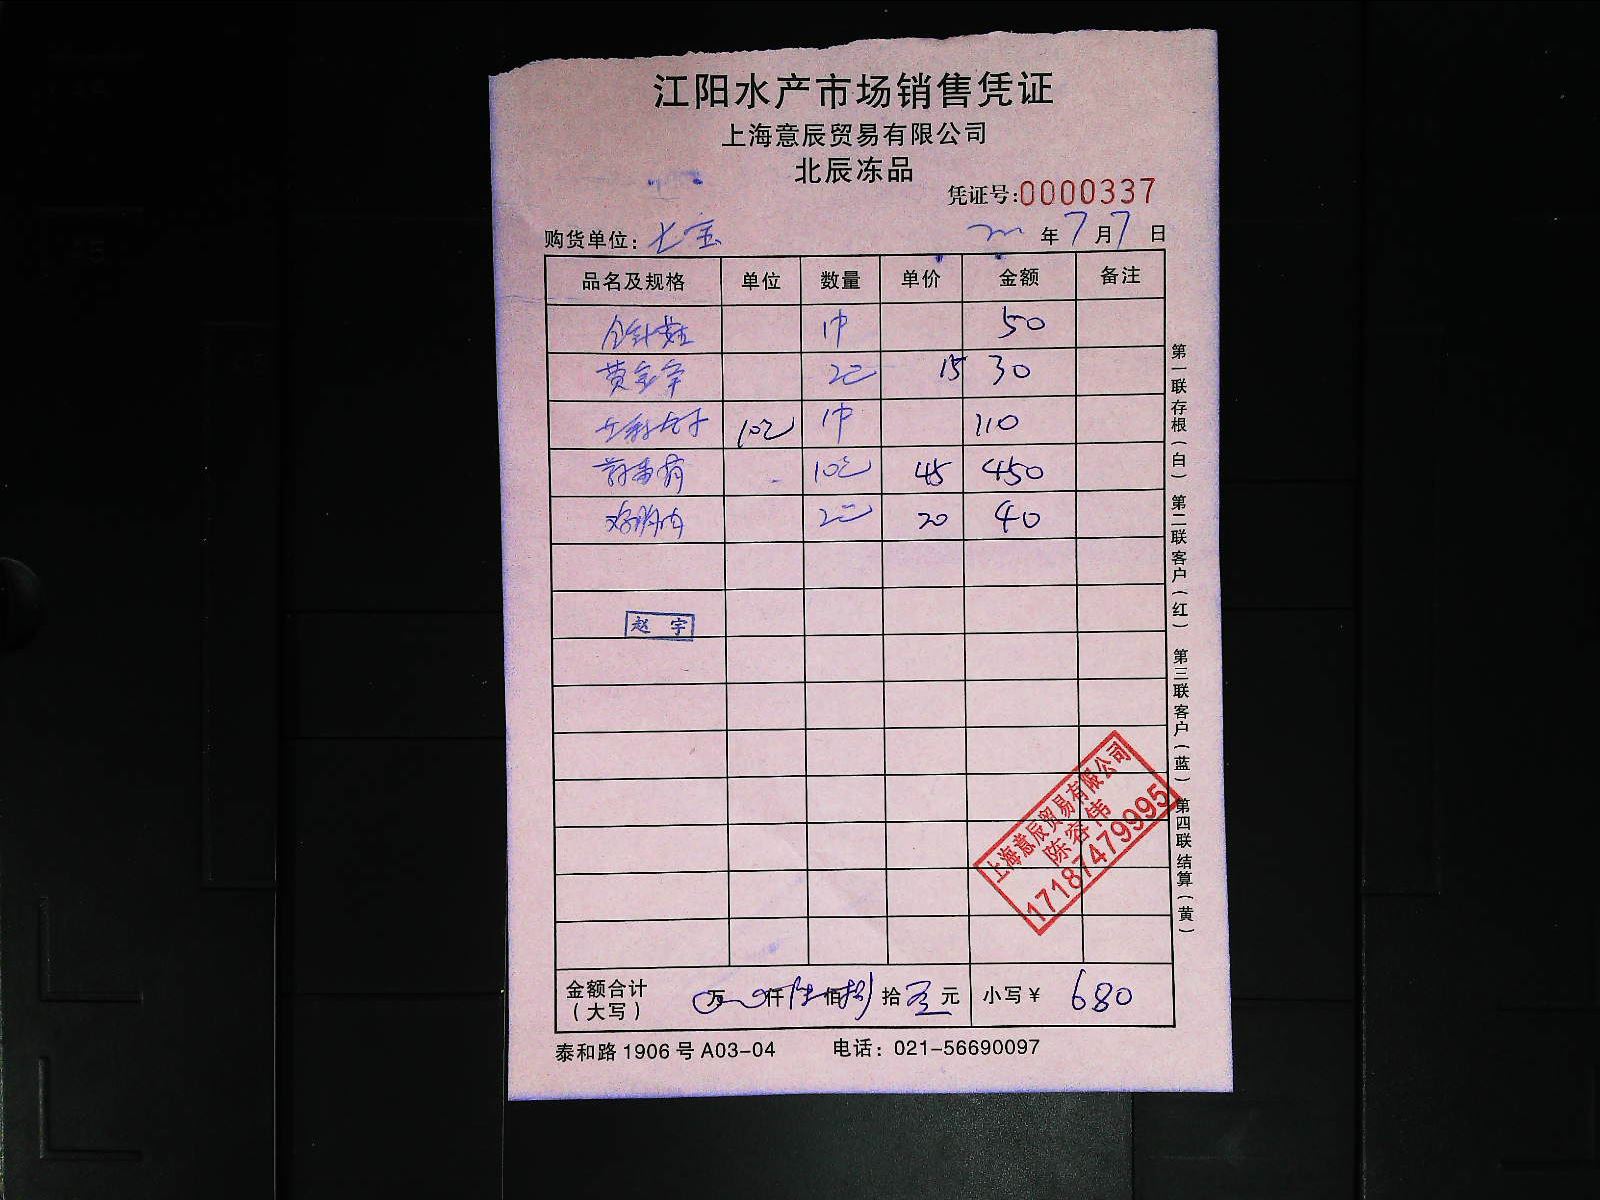 江阳水产市场销售凭证
上海意辰贸易有限公司
北辰冻品
凭证号:0000337
购货单位: 七宝 年 7 月 7 日
品名及规格 单位 数量 单价 金额 备注
1件 50
黄金 15 30
1件 110
45 450
鸡胸肉 20 40
赵 宇
上海意辰贸易有限公司
陈容伟
17187479995
金额合计 万 仟 陆 佰 捌 拾 元 小写¥ 680
(大写)
泰和路1906号A03-04 电话: 021-56690097
第一联存根(白) 第二联客户(红) 第三联客户(蓝) 第四联结算(黄)